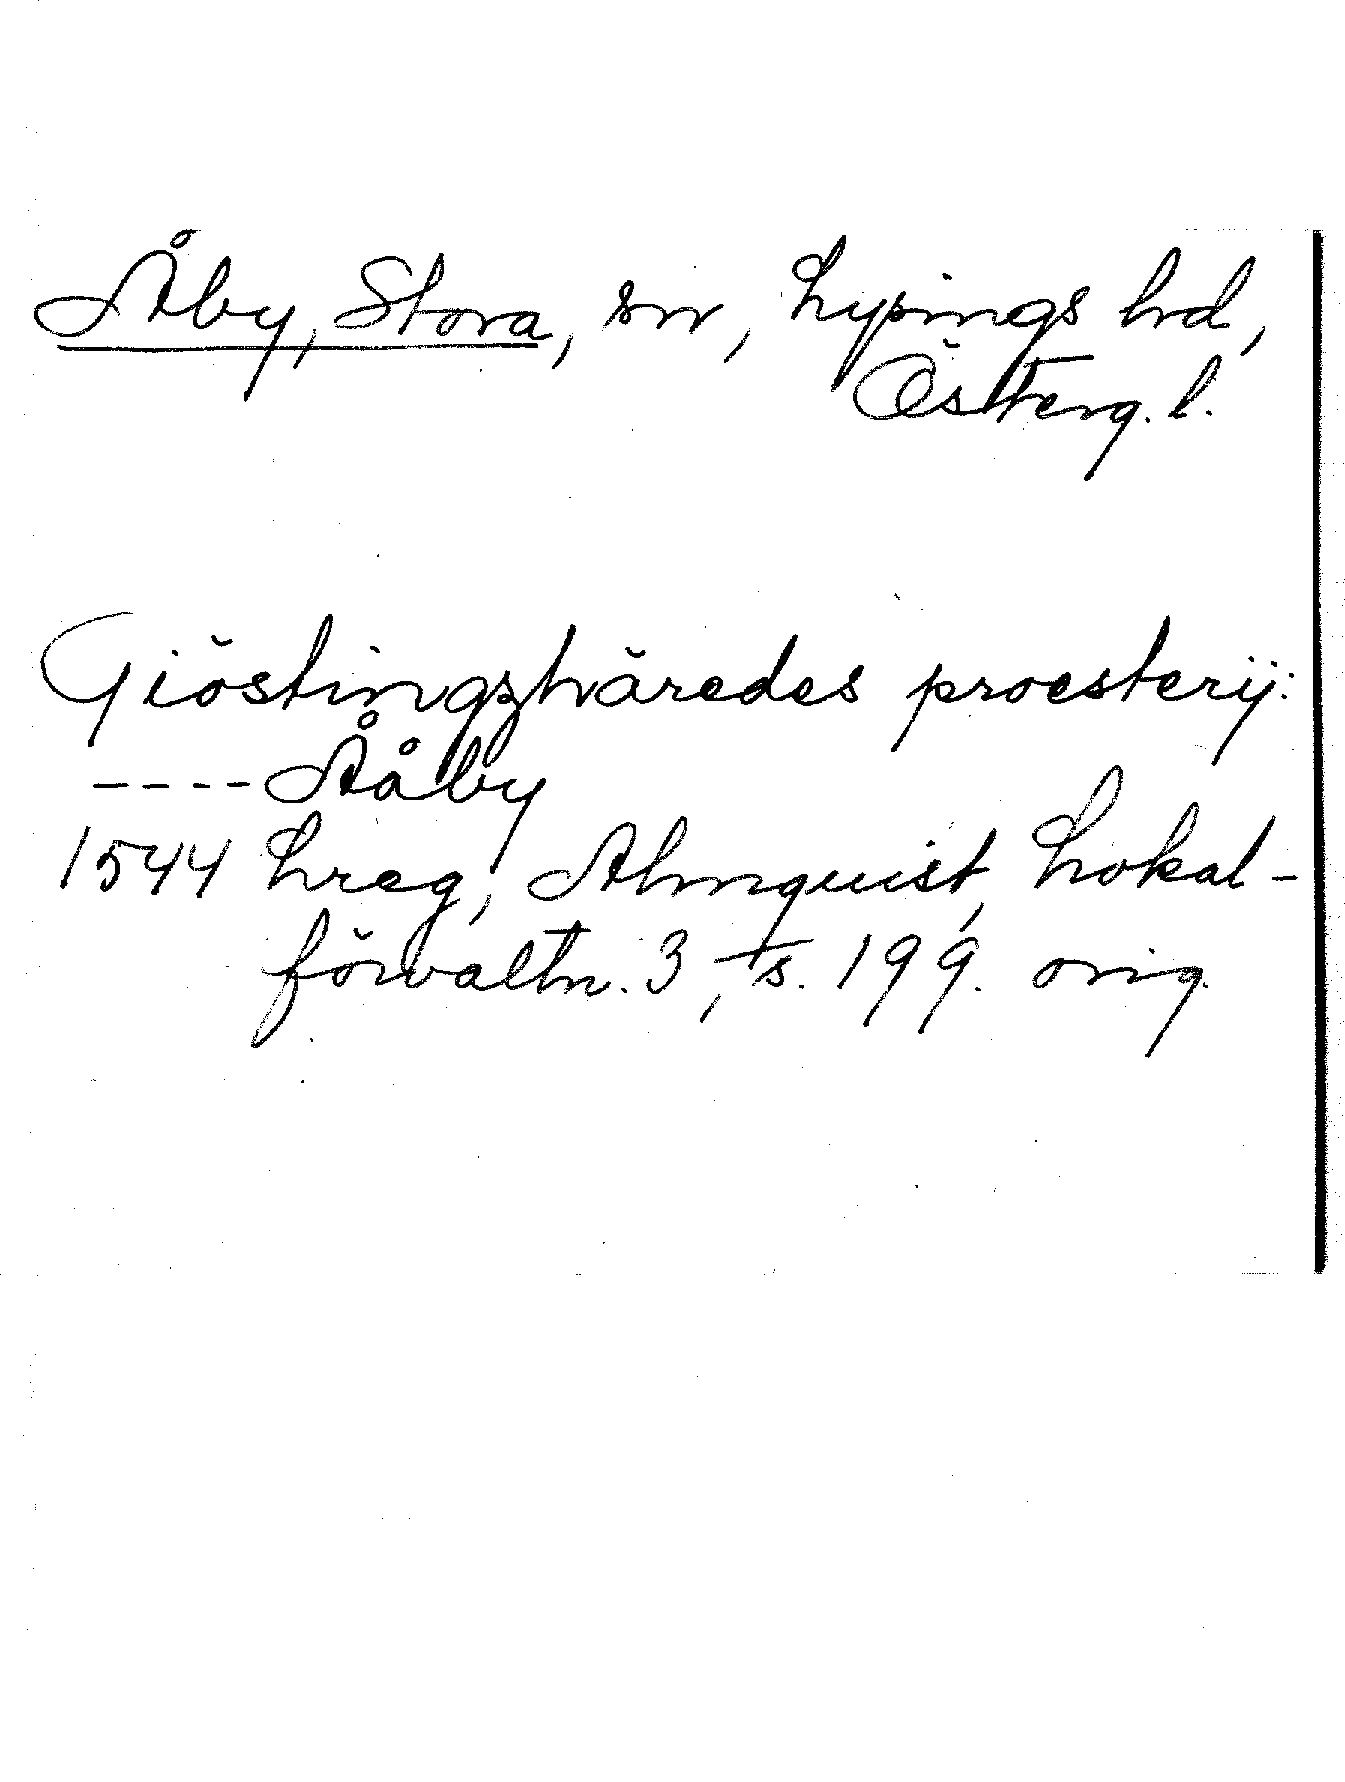 Åby, Stora, sn, Lysings hd,
Österg. l.
Giöstingzhäredes proesterij:
---- Ååby
1544 Lreg, Almquist, Lokal-
förvaltn. 3, s. 199. orig.